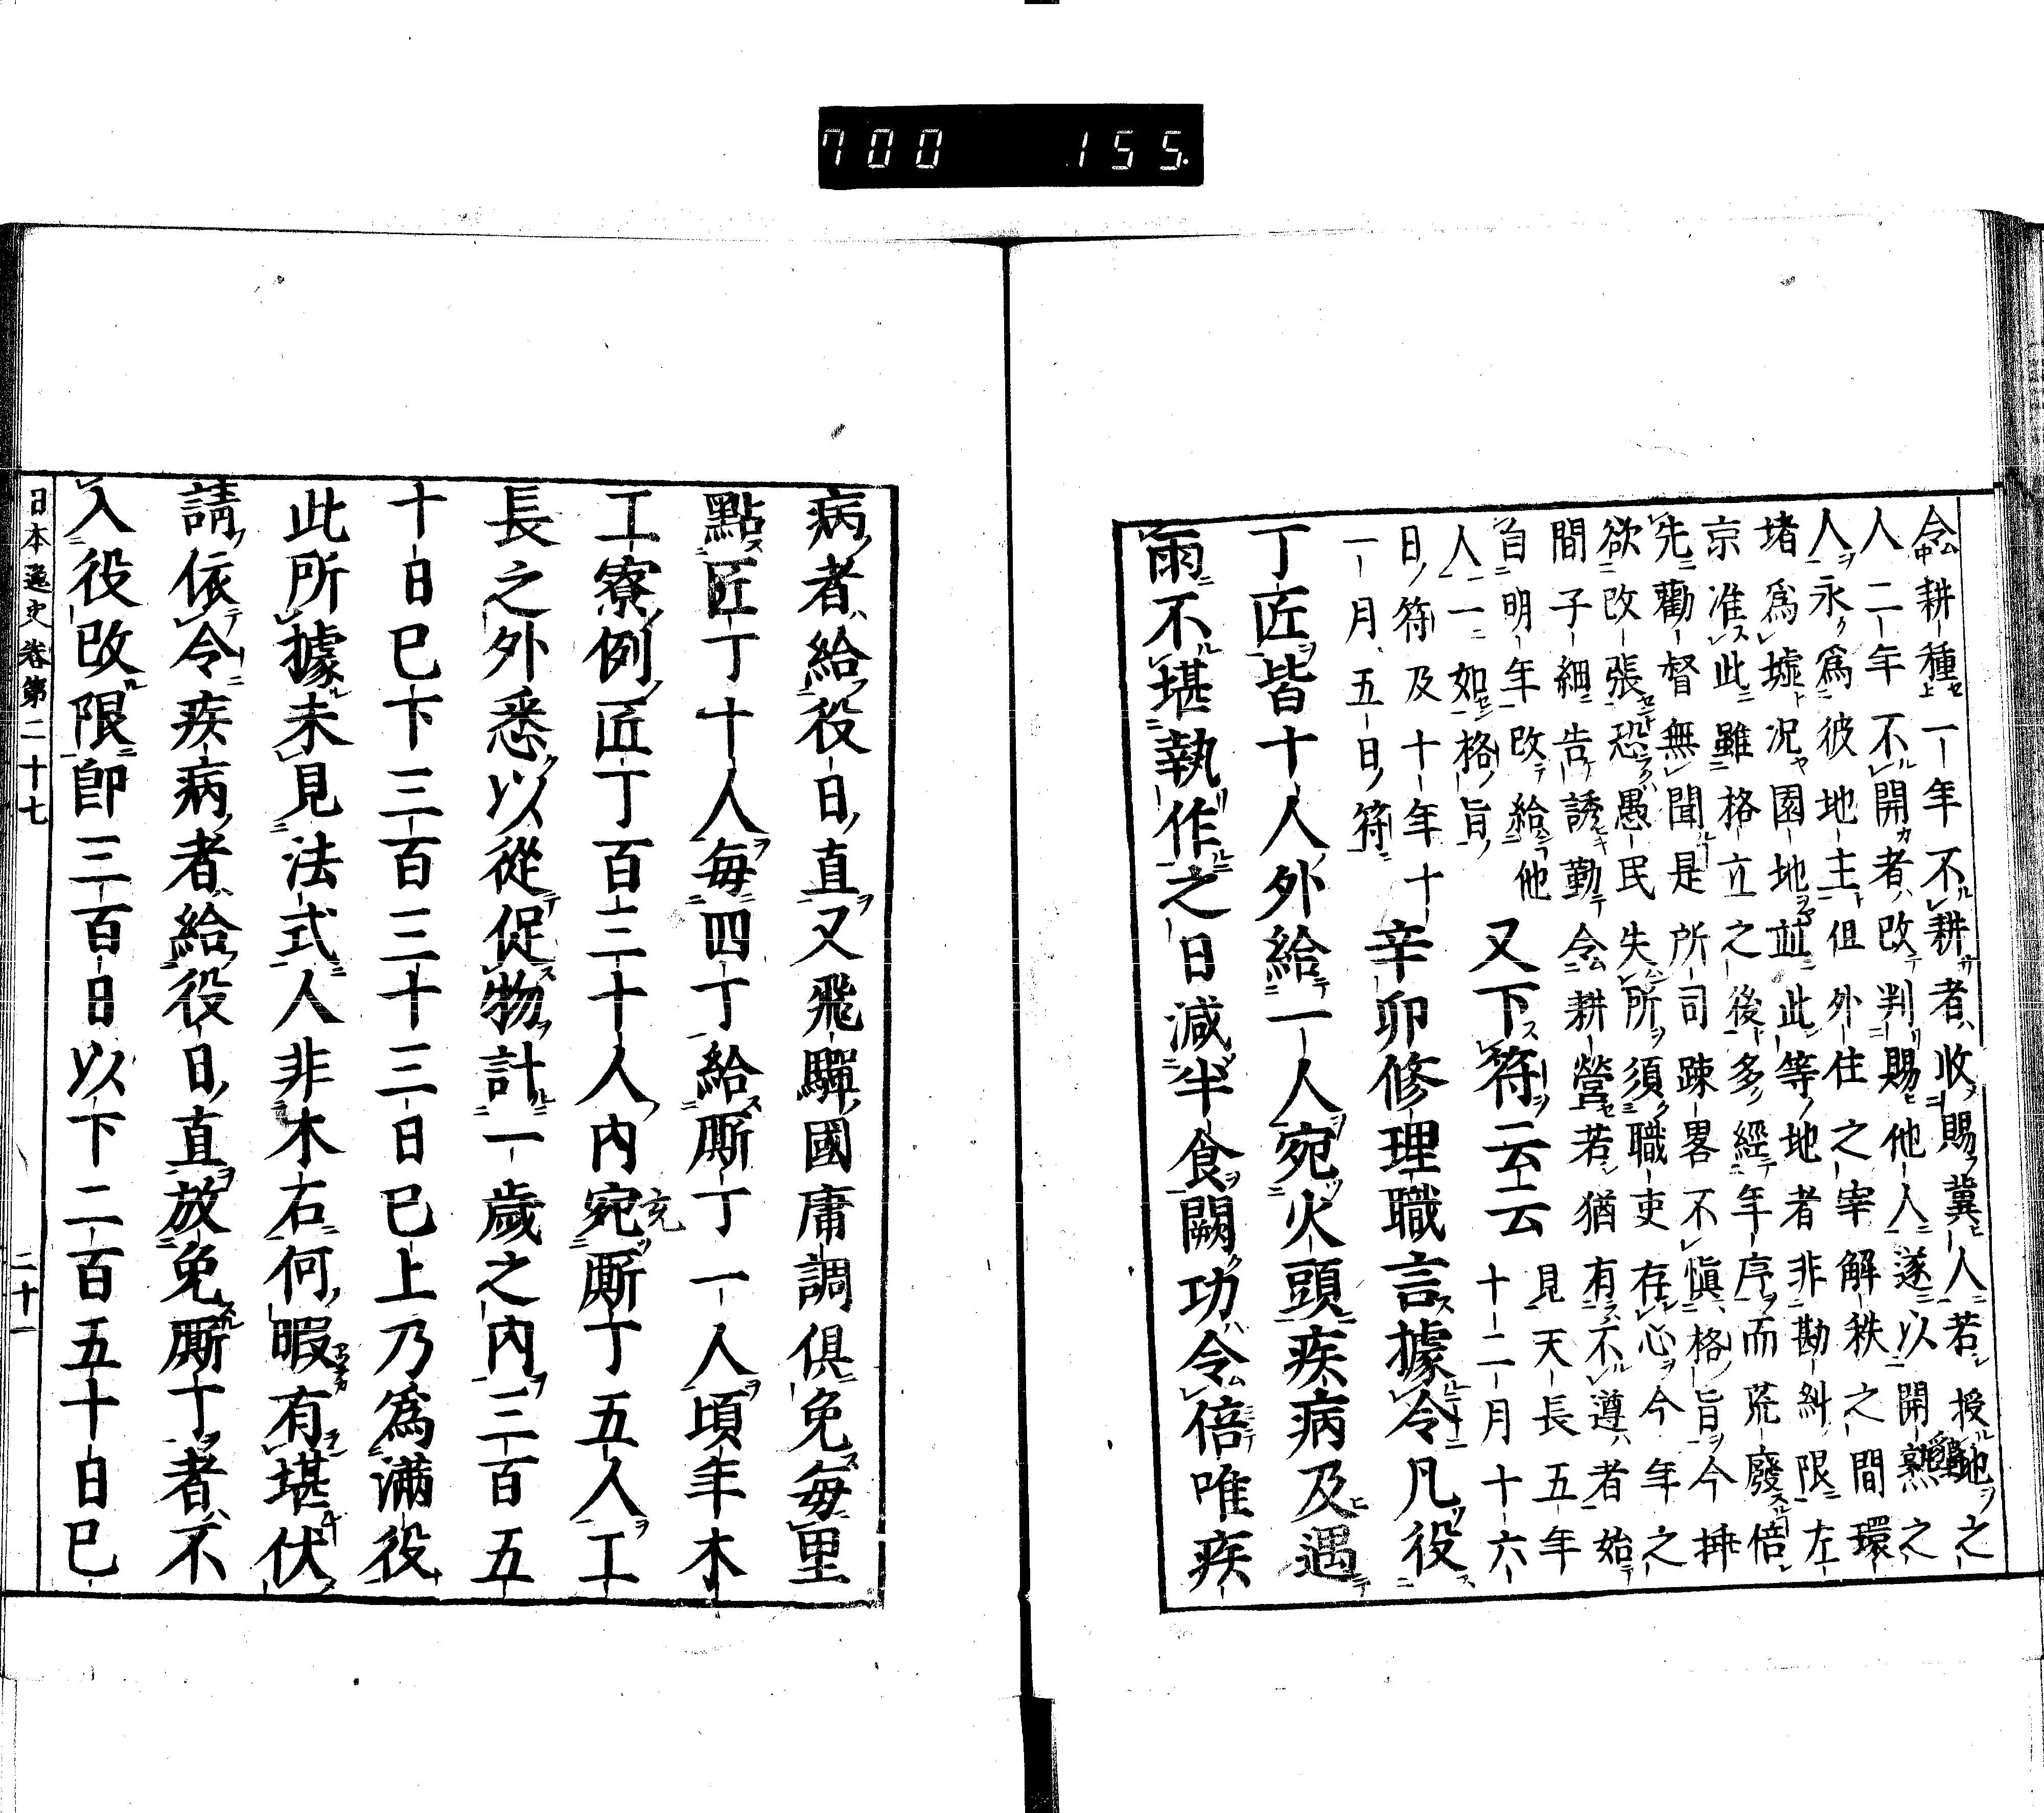 令耕種一年不耕者收賜冀人若授地之
人二年不開者改判賜他人遂以開熟之
人永爲彼地主但外住之宰解秩之間環
堵爲墟况園地並此等地者非勘糾限左
京准此雖格立之後多經年序而荒廢倍
先勸督無聞是所司踈畧不愼格旨今挿
欲改張恐愚民失所須職吏存心今年之
間子細告誘勤令耕營若猶有不遵者始
自明年改給他
人一如格旨
又下符云云
見天長五年
十二月十六
日符及十年十
一月五日符
辛卯修理職言據令凡役
丁匠皆十人外給一人宛火頭疾病及遇
雨不堪執作之日減半食闕功令倍唯疾
病者給役日直又飛驒國庸調俱免毎里
點匠丁十人毎四丁給厮丁一人頃年木
工寮例匠丁百二十人内宛厮丁五人工
充
長之外悉以從促物計一歲之内三百五
十日巳下三百三十三日巳上乃爲滿役
此所據未見法式人非木石何暇有堪伏
請依令疾病者給役日直放免厮丁者不
入役改限卽三百日以下二百五十日巳
日本逸史卷第二十七
二十一
700 155.